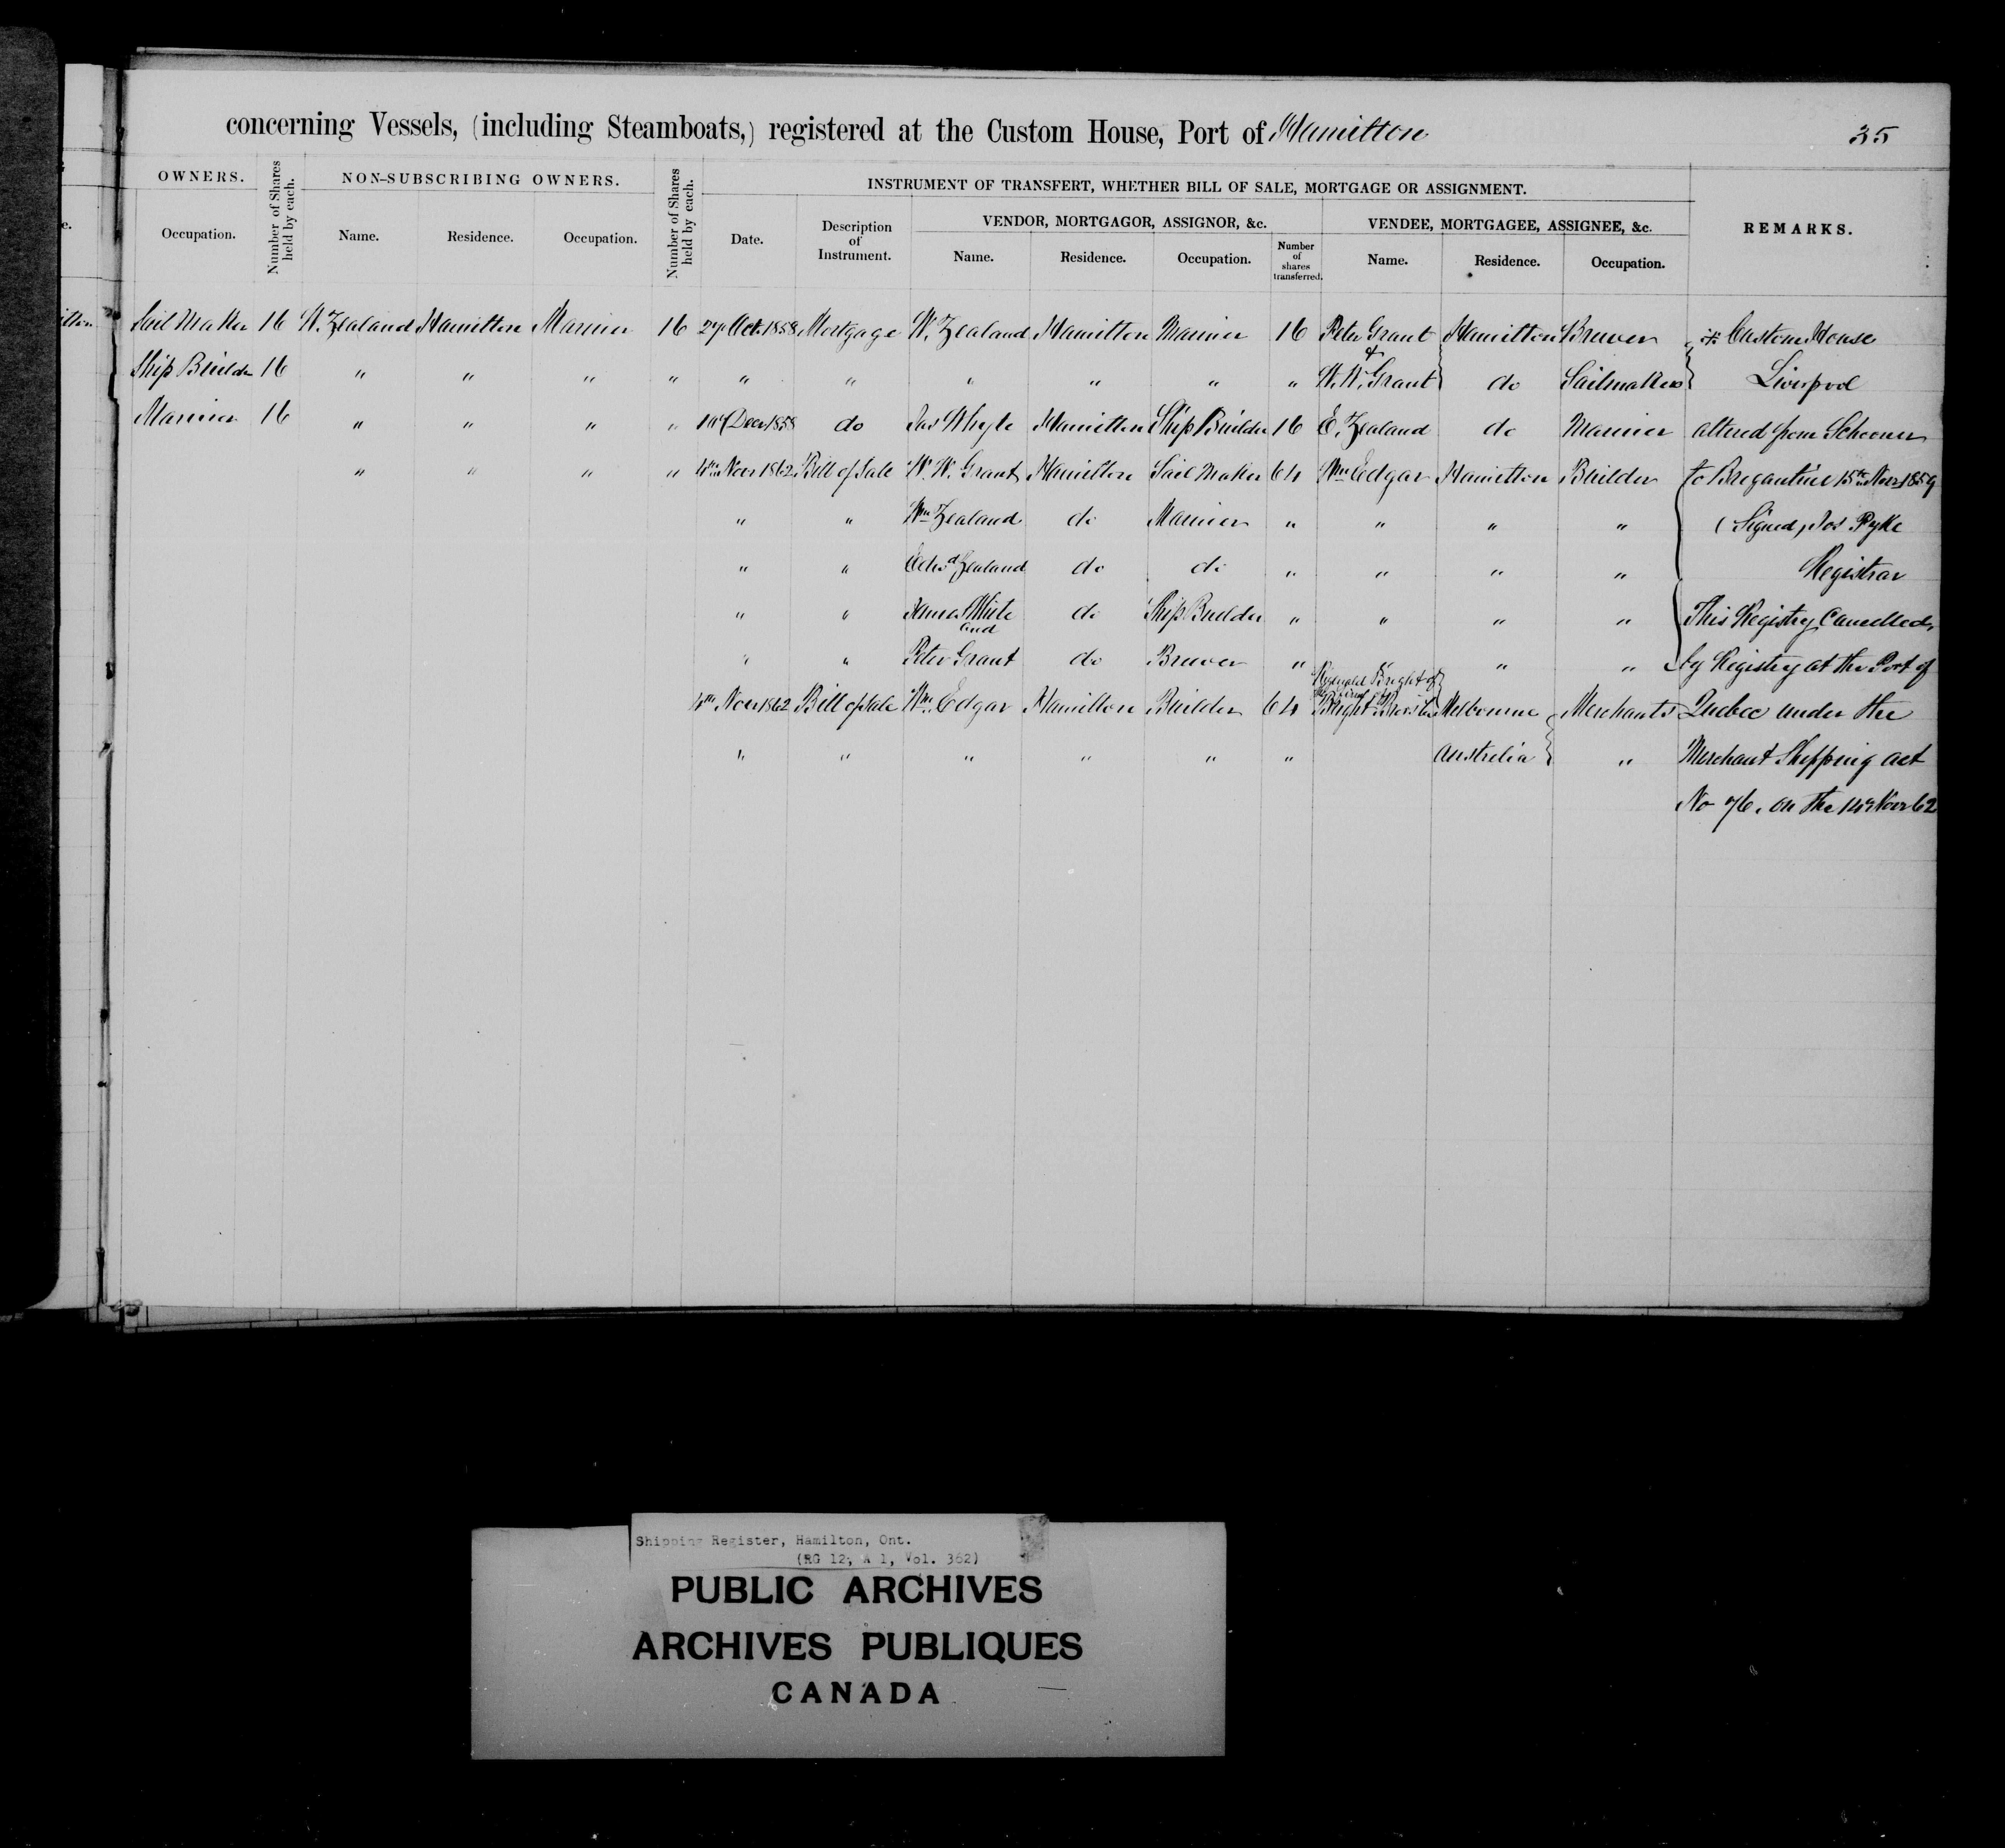 concerning Vessels, (including Steamboats,) registered at the Custom House, Port of Hamilton 35
OWNERS. Number of Shares held by each. NON-SUBSCRIBING OWNERS. Number of Shares held by each. INSTRUMENT OF TRANSFERT, WHETHER BILL OF SALE, MORTGAGE OR ASSIGNMENT. REMARKS.
VENDOR, MORTGAGOR, ASSIGNOR, &c. VENDEE, MORTGAGEE, ASSIGNEE, &c.
Occupation. Name. Residence. Occupation. Date. Description of Instrument. Name. Residence. Occupation. Number of shares transferred. Name. Residence. Occupation.
Sail Maker 16 W. Zealand Hamilton Mariner 16 27 Oct. 1858 Mortgage W. Zealand Hamilton Mariner 16 Peter Grant Hamilton Brewer Custom House
&
Ship Builder 16 " " " " " " " " " " W. W. Grant do Sailmaker Liverpool
Mariner 16 " " " " Decr 1858 do Jas Whyte Hamilton Ship Builder 16 E. Zealand do Mariner altered from Schooner
" " " " 4th Novr 1862 Bill of Sale W. W. Grant Hamilton Sail Maker 64 Wm Edgar Hamilton Builder to Bregantine 15th Novr 1859
" " Wm Zealand do Mariner " " " " (Signed, Jos Pyke
" " Edwd Zealand do do " " " " Registrar
" " James White do Ship Builder " " " " This Registry Cancelled
and
" " Peter Grant do Brewer " " " " by Registry at the Port of
Reginald Bright of
4th Novr 1862 Bill of Sale Wm Edgar Hamilton Builder 64 Bright Melbourne Merchants Quebec under the
" " " " " " Australia " Merchant Shipping act
No 76. on the 14 Novr 62
Shipping Register, Hamilton, Ont.
(RG 12, A 1, Vol. 362)
PUBLIC ARCHIVES
ARCHIVES PUBLIQUES
CANADA